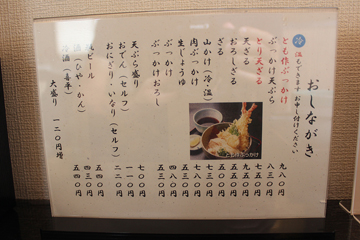 おしながき
冷 温もできます お申し付けください
とも作ぶっかけ 九八〇円
ぶっかけ天ぷら 八三〇円
とり天ざる 九五〇円
天ざる 九五〇円
おろしざる
ざる
山かけ(冷・温)
肉ぶっかけ
生じょうゆ
ぶっかけ
ぶっかけおろし
天ぷら盛り 七〇〇円
おでん(セルフ) 一一〇円
おにぎり・いなり(セルフ) 二二〇円
ビール 五四〇円
酒(ひや・かん) 四三〇円
酒(喜平) 五四〇円
大盛り 一二〇円増
とも作ぶっかけ